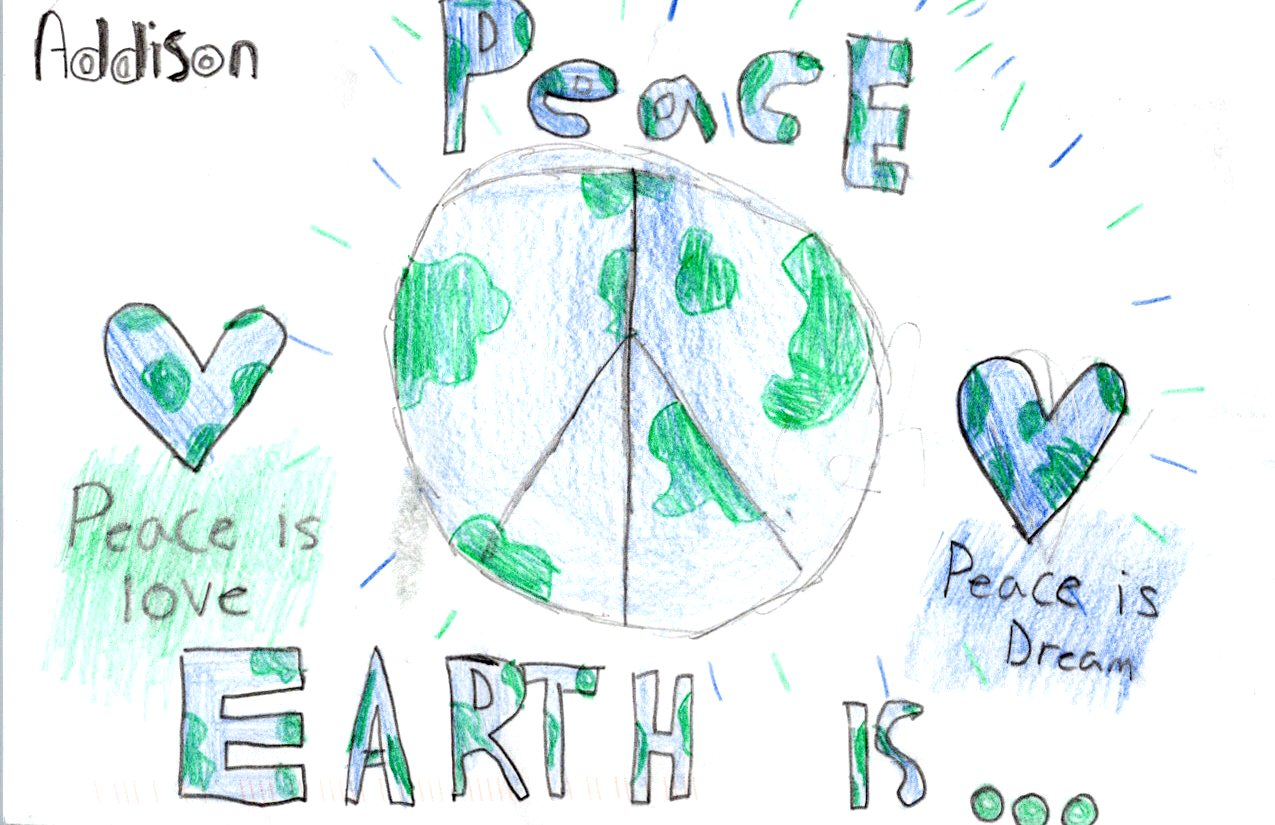 Addison
PeacE
Peace is
love
Peace is
Dream
EARTH IS...